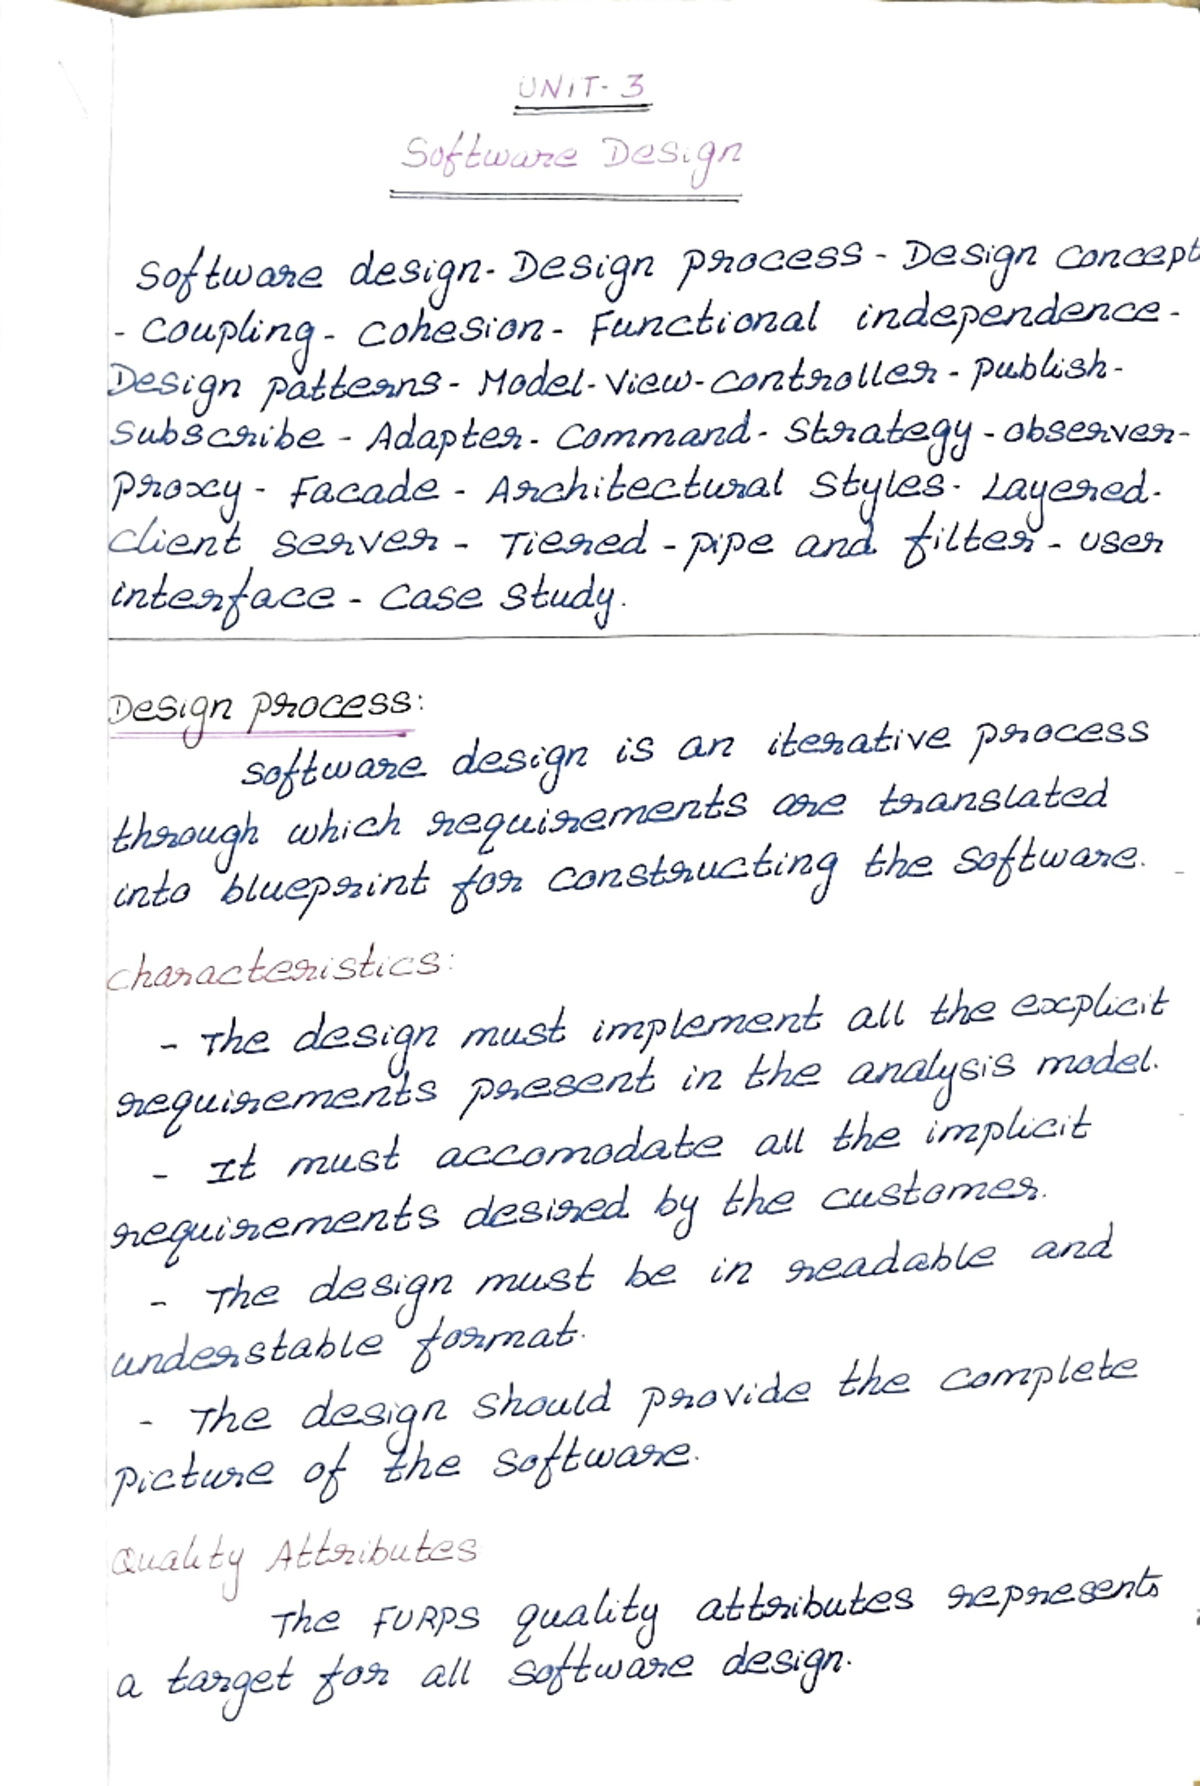 UNIT- 3
Software Design
Software design- Design process - Design concept
- Coupling - Cohesion - Functional independence -
Design patterns - Model-View-Controller - Publish-
Subscribe - Adapter - Command - Strategy - observer-
proxy - Facade - Architectural Styles - Layered-
Client server - Tiered - pipe and filter - user
interface - Case Study.
Design process:
Software design is an iterative process
through which requirements are translated
into blueprint for constructing the software.
Characteristics:
- The design must implement all the explicit
requirements present in the analysis model.
- It must accomodate all the implicit
requirements desired by the customer.
- The design must be in readable and
understable format.
- The design should provide the complete
picture of the software.
Quality Attributes
The FURPS quality attributes represents
a target for all software design.